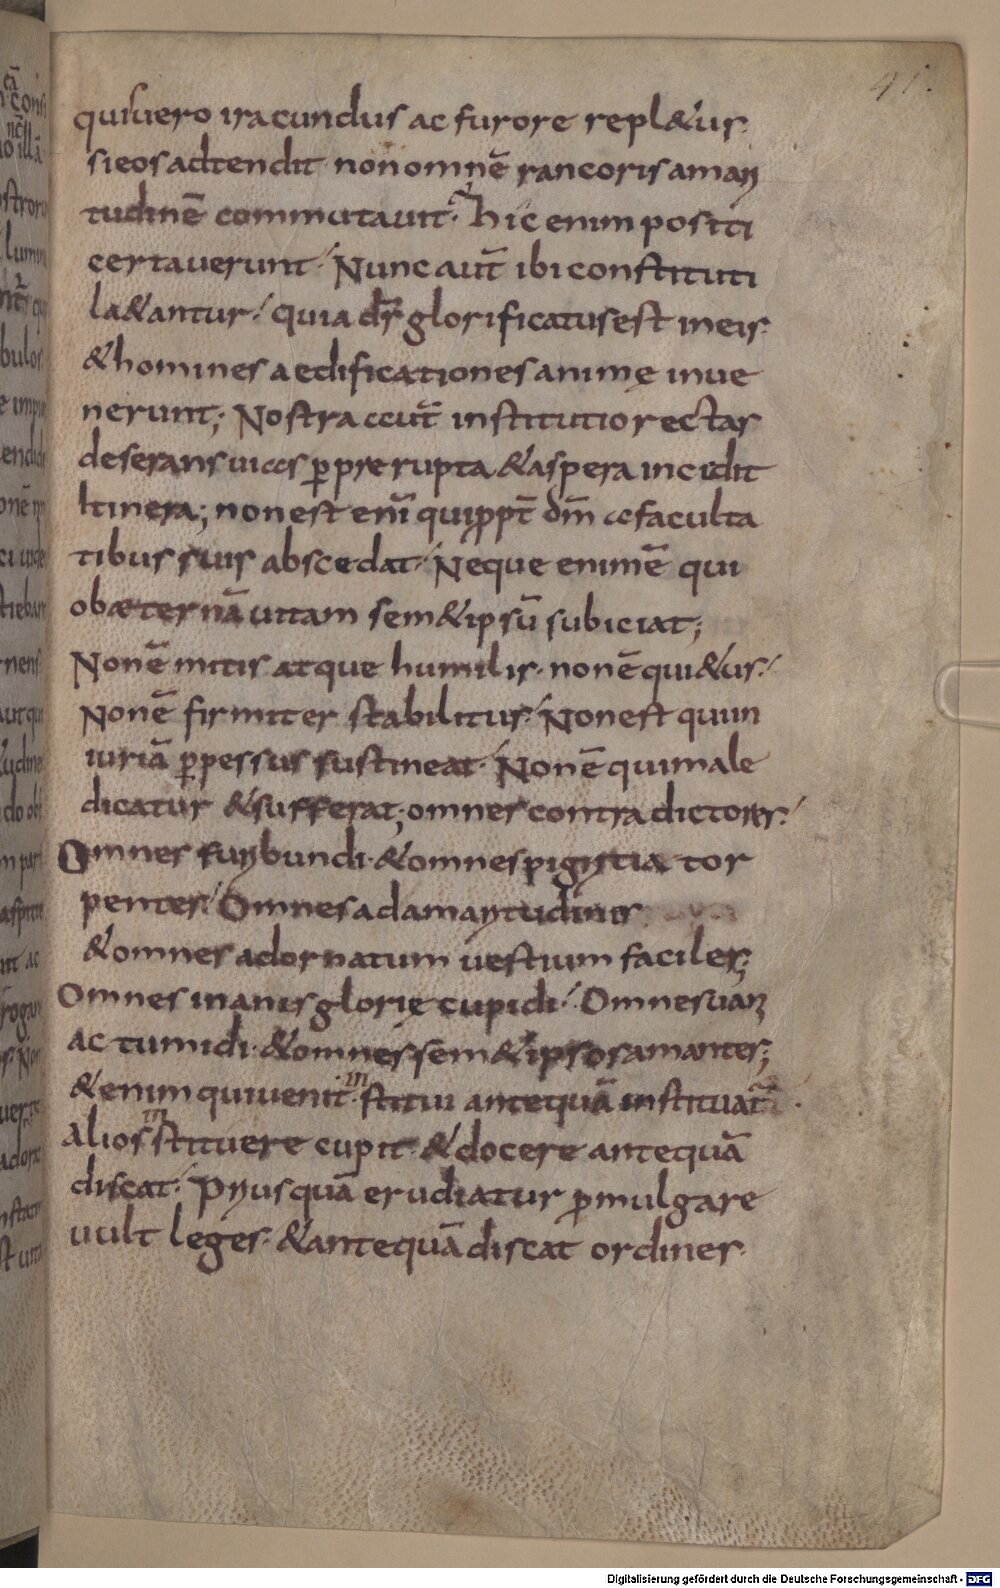 41.
quiuero iracundus ac furore repl&us.
sieos adtendit non omnē rancoris amari
tudinē commutauit. hic enim positi
certauerunt. Nunc aut̄ ibi constituti
la&antur. quia dn̄s glorificatus est in eis.
& homines aedificationes animę inue
nerunt; Nostra aut̄ institutio rectas
deserans uias p̱ prerupta & aspera incidit
Itinera; non est eni̅ qui ꝓpt̄ dm̄ a faculta
tibus suis abscedat. Neque enim ē qui
ob æternā uitam sem&ipsū subiciat;
Non ē mitis atque humilis. non ē qui&us.
Non ē firmiter stabilitus. Non est qui in
iuriā ꝑpessus sustineat. Non ē qui male
dicatur & sufferat; omnes contradictores.
Omnes furibundi. & omnes pigritia tor
pentes. Omnes ad amaritudines
& omnes ad ornatum uestium faciles;
Omnes inanis glorię cupidi. Omnes uani
ac tumidi. & omnes sem&ipsos amantes;
&enim qui uenit institui antequā instituat̄.
Alios instituere cupit & docere antequā
discat. Priusquā erudiatur ꝓmulgare
uult leges. & antequā discat ordines.
Digitalisierung gefördert durch die Deutsche Forschungsgemeinschaft - DFG